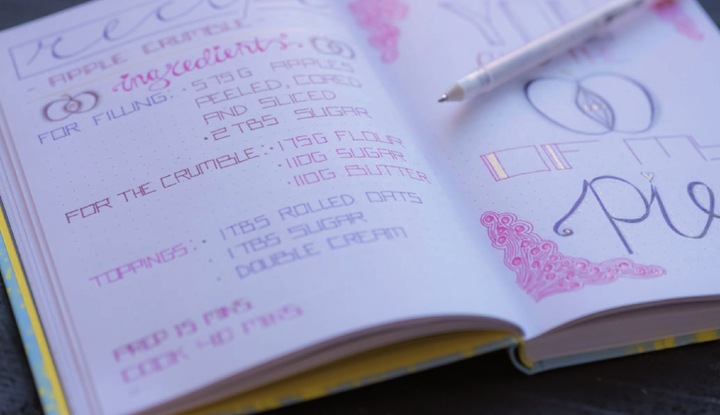 recipe
- APPLE CRUMBLE
ingredients:
FOR FILLING: • 575G APPLES
PEELED, CORED
AND SLICED
• 2 TBS SUGAR
FOR THE CRUMBLE: • 175G FLOUR
• 110G SUGAR
• 110G BUTTER
TOPPINGS: • 1 TBS ROLLED OATS
• 1 TBS SUGAR
• DOUBLE CREAM
PREP 15 MINS
COOK 40 MINS
YOU
OF MY
pie